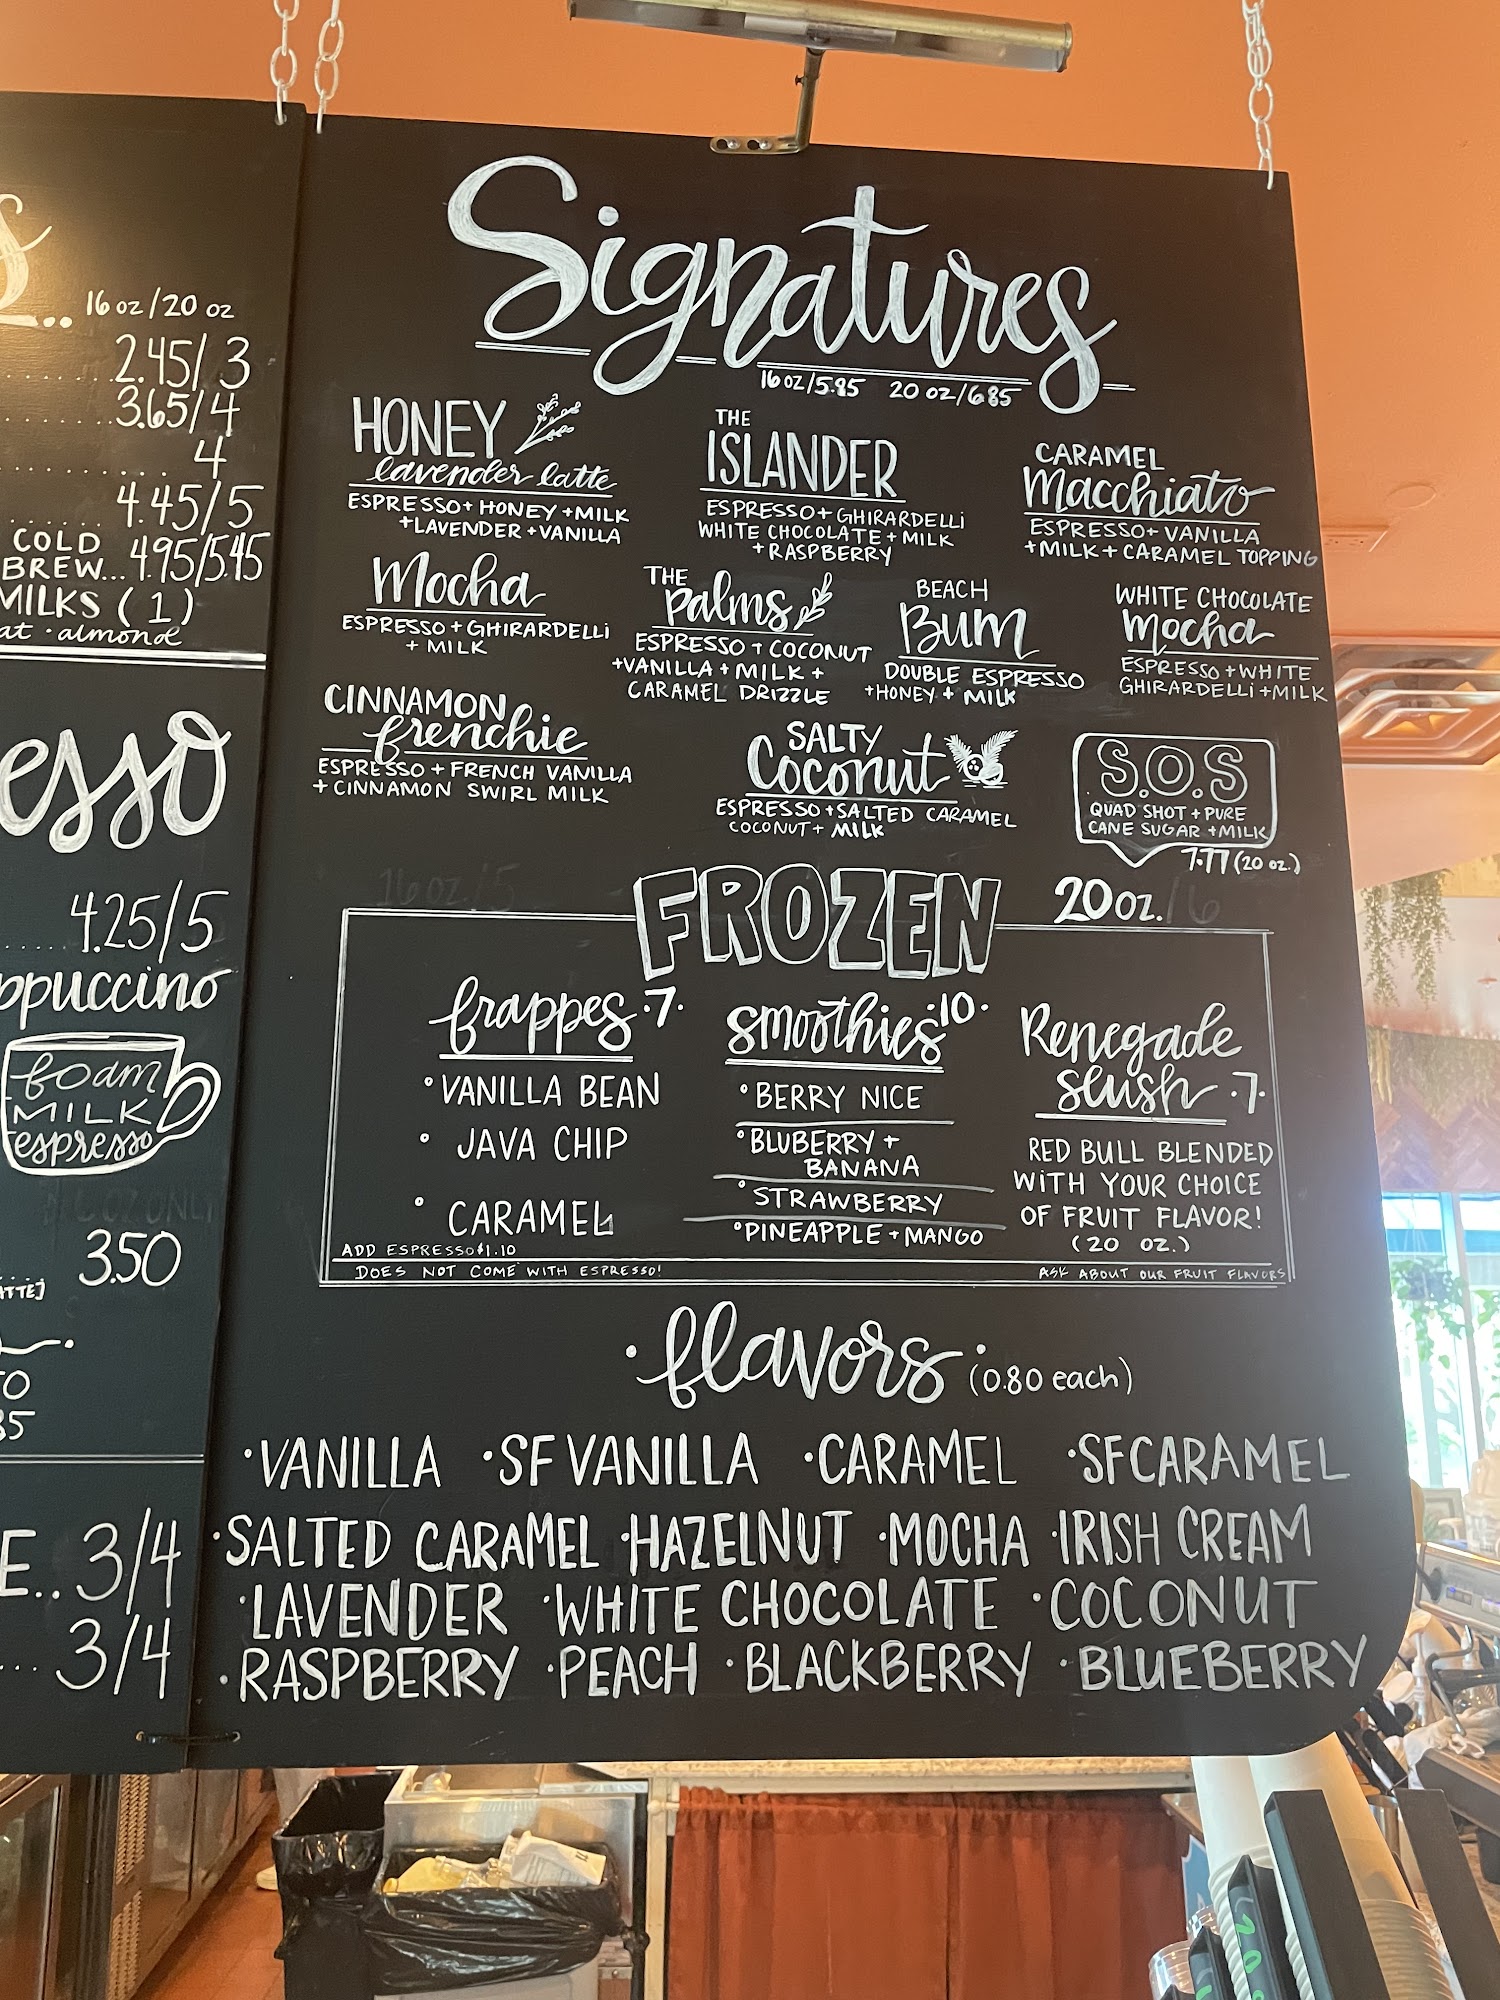 16 oz/20 oz
2.45/ 3
3.65/4
4
4.45/5
COLD
BREW... 4.95/5.45
MILKS (1)
almond
4.25/5
foam
MILK
espresso
3.50
3/4
3/4
Signatures
16 oz/5.85 20 oz/6.85
HONEY
lavender latte
ESPRESSO + HONEY + MILK
+ LAVENDER + VANILLA
THE
ISLANDER
ESPRESSO + GHIRARDELLI
WHITE CHOCOLATE + MILK
+ RASPBERRY
CARAMEL
Macchiato
ESPRESSO + VANILLA
+ MILK + CARAMEL TOPPING
Mocha
ESPRESSO + GHIRARDELLI
+ MILK
THE
Palms
ESPRESSO + COCONUT
+ VANILLA + MILK +
CARAMEL DRIZZLE
BEACH
BUM
DOUBLE ESPRESSO
+ HONEY + MILK
WHITE CHOCOLATE
Mocha
ESPRESSO + WHITE
GHIRARDELLI + MILK
CINNAMON
frenchie
ESPRESSO + FRENCH VANILLA
+ CINNAMON SWIRL MILK
SALTY
Coconut
ESPRESSO + SALTED CARAMEL
COCONUT + MILK
S.O.S
QUAD SHOT + PURE
CANE SUGAR + MILK
7.77 (20 oz.)
FROZEN
20 oz.
frappes .7.
• VANILLA BEAN
• JAVA CHIP
• CARAMEL
ADD ESPRESSO $1.10
DOES NOT COME WITH ESPRESSO!
smoothies .10.
• BERRY NICE
• BLUBERRY +
BANANA
• STRAWBERRY
• PINEAPPLE + MANGO
Renegade
slush .7.
RED BULL BLENDED
WITH YOUR CHOICE
OF FRUIT FLAVOR!
(20 OZ.)
ASK ABOUT OUR FRUIT FLAVORS
• flavors • (0.80 each)
• VANILLA • SF VANILLA • CARAMEL • SF CARAMEL
• SALTED CARAMEL • HAZELNUT • MOCHA • IRISH CREAM
• LAVENDER • WHITE CHOCOLATE • COCONUT
• RASPBERRY • PEACH • BLACKBERRY • BLUEBERRY